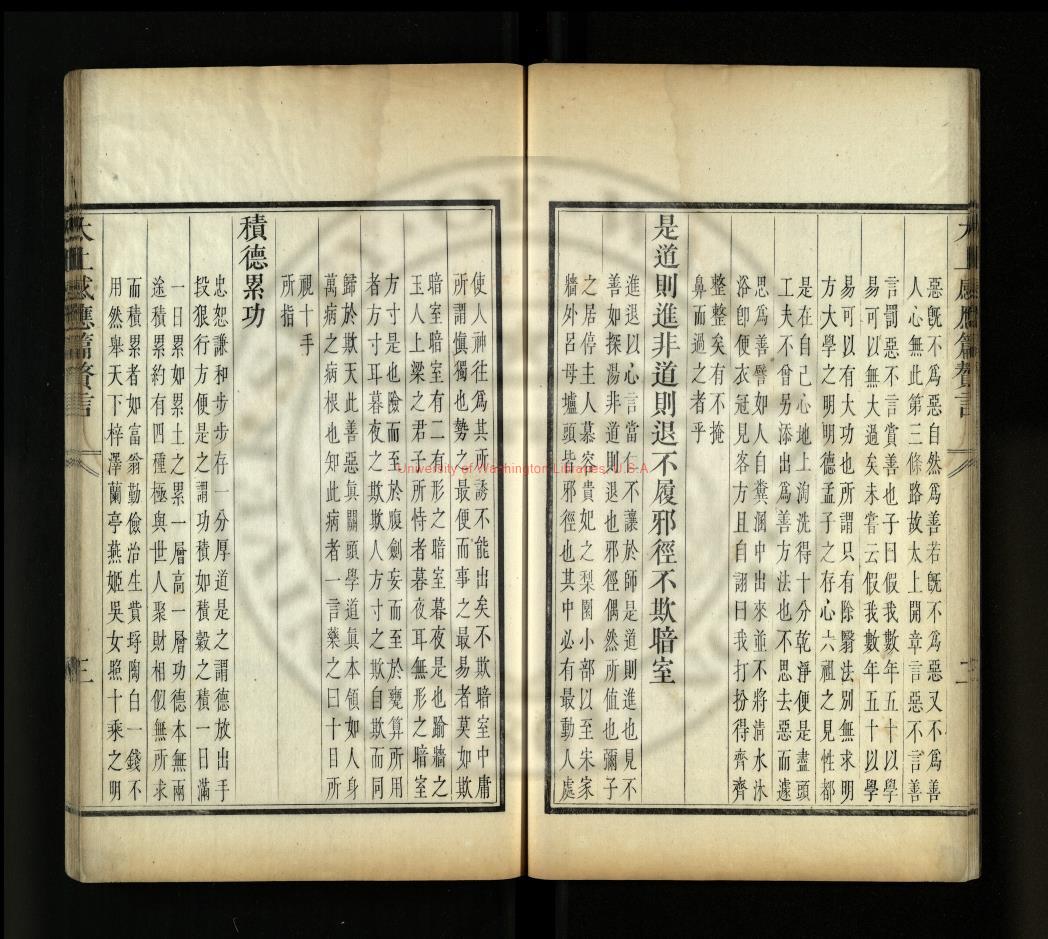 太上感應篇贅言
二
惡旣不爲惡自然爲善若旣不爲惡又不爲善
人心無此第三條路故太上開章言惡不言善
言罰惡不言賞善也子曰假我數年五十以學
易可以無大過矣未嘗云假我數年五十以學
易可以有大功也所謂只有除翳法別無求明
方大學之明明德孟子之存心六祖之見性都
是在自己心地上洵洗得十分乾淨便是盡頭
工夫不曾另添出爲善方法也不思去惡而遽
思爲善譬如人自糞溷中出來並不將淸水沐
浴卽便衣冠見客方且自詡曰我打扮得齊齊
整整矣有不掩
鼻而過之者乎
是道則進非道則退不履邪徑不欺暗室
進退以心言當仁不讓於師是道則進也見不
善如探湯非道則退也邪徑偶然所值也彌子
之居停主人慕容貴妃之梨園小部以至宋家
牆外呂母壚頭皆邪徑也其中必有最動人處
使人神往爲其所誘不能出矣不欺暗室中庸
所謂愼獨也勢之最便而事之最易者莫如欺
暗室暗室有二有形之暗室暮夜是也踰牆之
玉人上梁之君子所恃者暮夜耳無形之暗室
方寸是也險而至於腹劍妄而至於甕算所用
者方寸耳暮夜之欺欺人方寸之欺自欺而同
歸於欺天此善惡眞關頭學道眞本領如人身
萬病之病根也知此病者一言藥之曰十目所
視十手
所指
積德累功
忠恕謙和步步存一分厚道是之謂德放出手
投狠行方便是之謂功積如積穀之積一日滿
一日累如累土之累一層高一層功德本無兩
途積累約有四種極與世人聚財相似無所求
而積累者如富翁勤儉治生貲埒陶白一錢不
用然舉天下梓澤蘭亭燕姬吳女照十乘之明
太上感應篇贅言
三
University of Washington Libraries, U.S.A